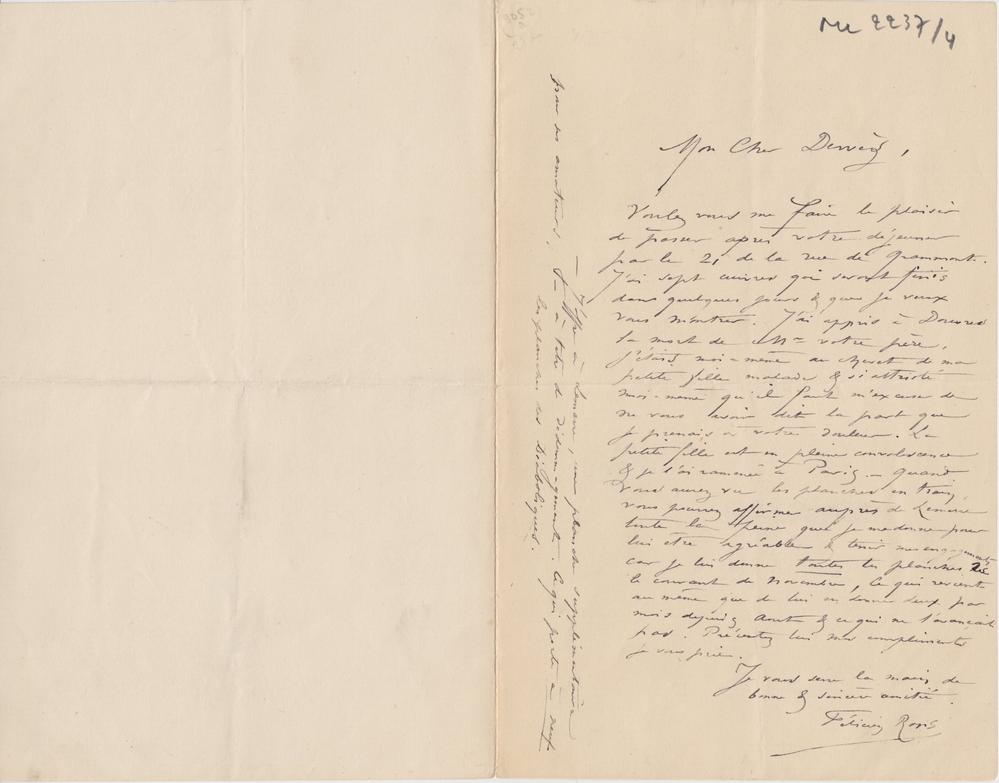 ML 2237/4
Mon Cher Derveé,
Voulez vous me faire le plaisir
de passer après votre déjeuner
par le 21 de la rue de Grammont.
J'ai sept cuivres qui seront finis
dans quelques jours & que je veux
vous montrer. J'ai appris à Douvres
la mort de Mr votre frère,
j'étais moi-même au chevet de ma
petite fille malade & si attristé
moi-même qu'il faut m'excuser de
ne vous avoir dit la part que
je prenais à votre douleur. La
petite fille est en pleine convalescence
& je l'ai ramenée à Paris – Quand
vous aurez vu les planches en train,
vous pourrez affirmer auprès de Lemerre
toute la peine que je me donne pour
lui être agréable & tenir mes engagements
car je lui donne toutes les planches
le courant de Novembre, ce qui revient
au même que de lui en donner deux par
mois depuis Aout & ce qui ne l'avançait
pas. Présentez lui mes compliments
je vous prie.
Je vous serre la main de
bonne & sincère amitié.
Félicien Rops
– J'offre à Lemerre, une planche supplémentaire
pour ses amateurs, à titre de dédommagement. Ce qui porte à neuf
les planches des Diaboliques.